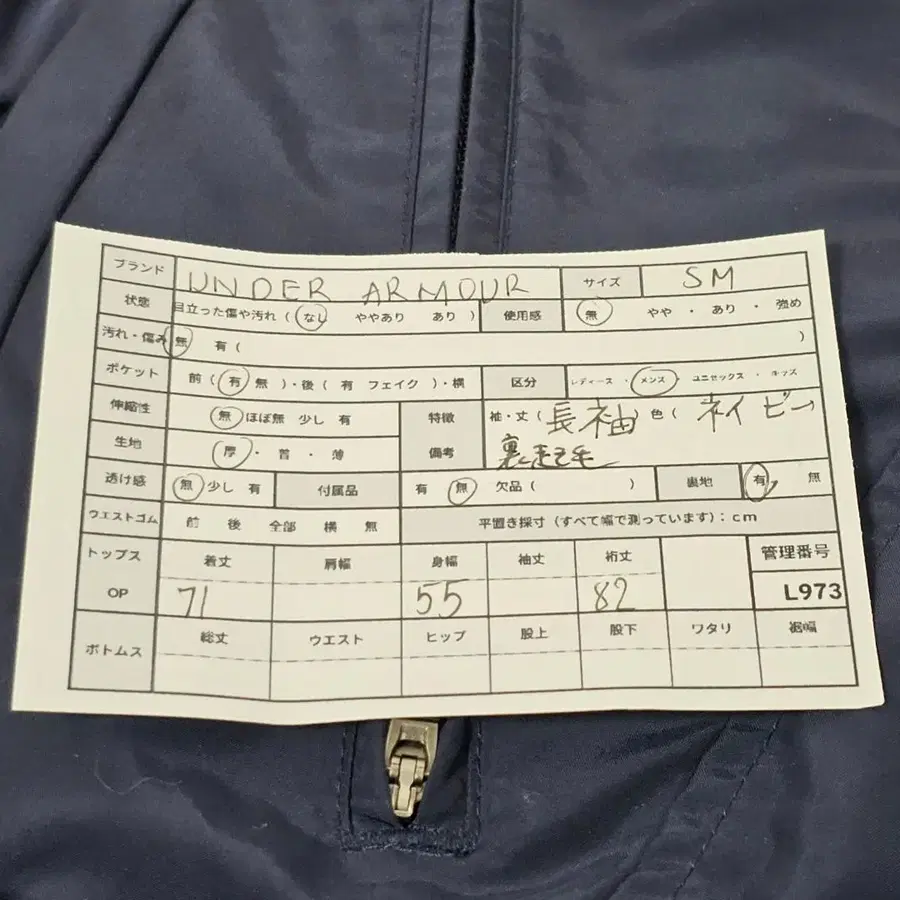 ブランド UNDER ARMOUR サイズ SM
状態 目立った傷や汚れ ( なし ややあり あり ) 使用感 無 やや ・ あり ・ 強め
汚れ・傷み 無 有 ( )
ポケット 前 ( 有 無 )・後 ( 有 フェイク )・横 区分 レディース ・ メンズ ・ ユニセックス ・ キッズ
伸縮性 無 ほぼ無 少し 有 特徴 袖・丈 ( 長袖 ) 色 ( ネイビー )
生地 厚 ・ 普 ・ 薄 備考 裏起毛
透け感 無 少し 有 付属品 有 無 欠品 ( ) 裏地 有 無
ウエストゴム 前 後 全部 横 無 平置き採寸 (すべて幅で測っています) : cm
トップス 着丈 肩幅 身幅 袖丈 裄丈 管理番号
OP 71 55 82 L973
ボトムス 総丈 ウエスト ヒップ 股上 股下 ワタリ 裾幅